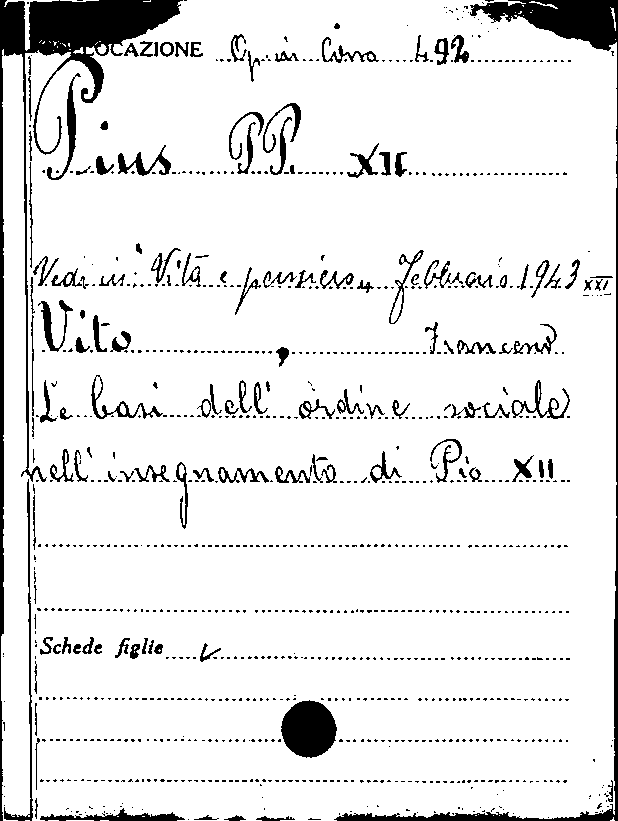 COLLOCAZIONE Op. in Corso 492
Pius PP. XII
Vedi in "Vita e pensiero„ Febbraio 1943 XXI
Vito, Francesco
Le basi dell' ordine sociale
nell' insegnamento di Pio XII
Schede figlie V